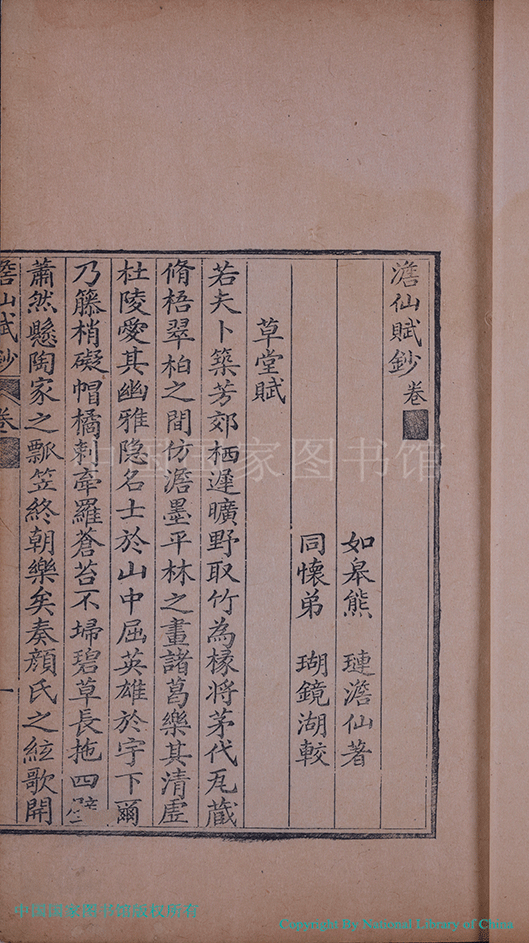 澹仙賦鈔 卷
如皋熊 璉澹仙著
同懷弟 瑚鏡湖較
草堂賦
若夫卜築芳郊栖遲曠野取竹為椽將茅代瓦蔵
脩梧翠柏之間仿澹墨平林之畫諸葛樂其清虛
杜陵愛其幽雅隐名士於山中屈英雄於宇下爾
乃籐梢礙帽橘刺牽羅蒼苔不埽碧草長拖四壁
蕭然懸陶家之瓢笠終朝樂矣奏顔氏之絃歌開
澹仙賦鈔 卷 一
中国国家图书馆
中国国家图书馆版权所有
Copyright By National Library of China